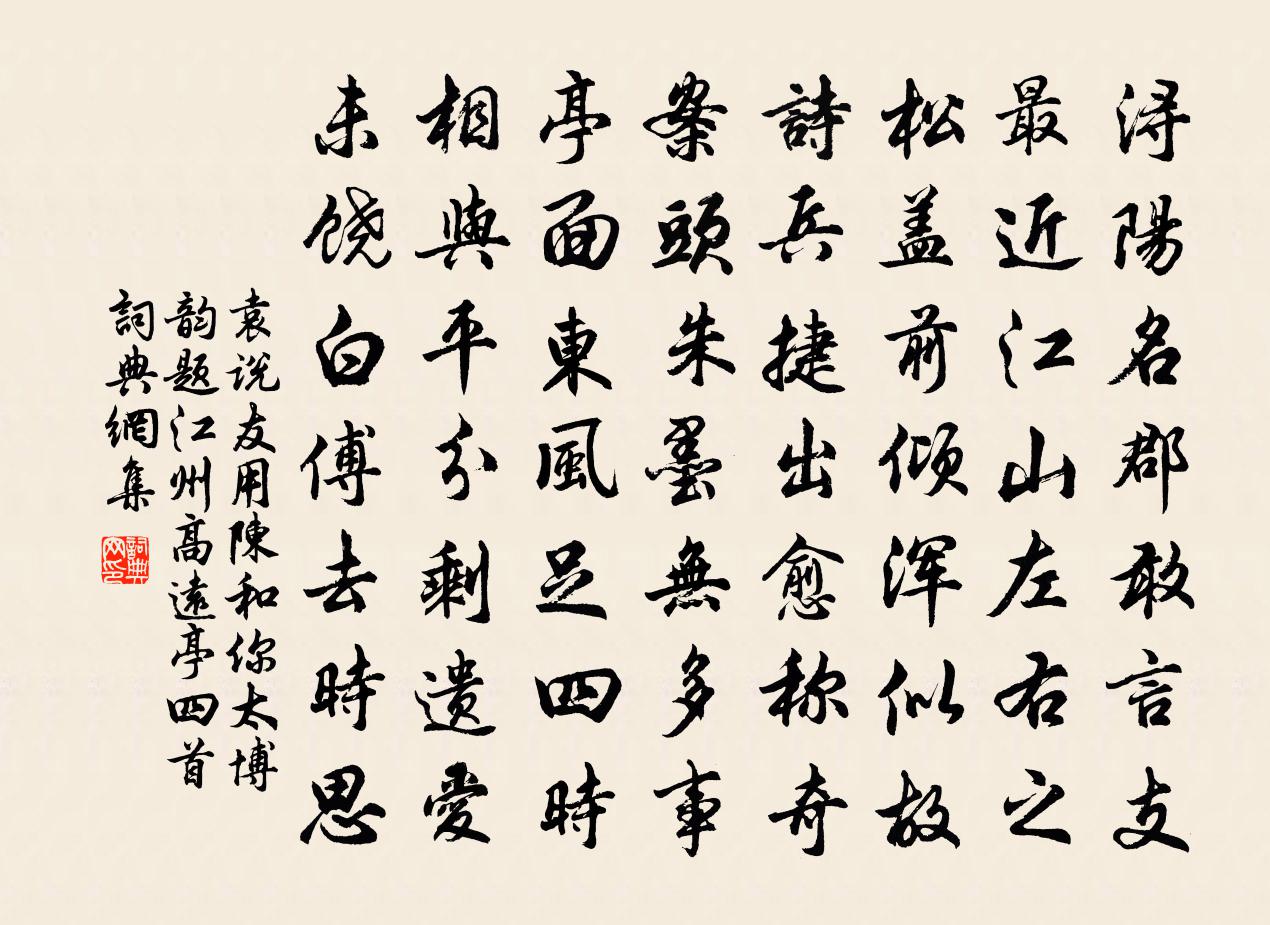 浔陽名郡敢言支
最近江山左右之
松盖前倾浑似故
詩兵捷出愈称奇
案頭朱墨無多事
亭面東風足四時
相與平分剩遗愛
未饶白傅去時思
袁说友用陳和你太博
韵题江州高遠亭四首
詞典網集
詞典网印